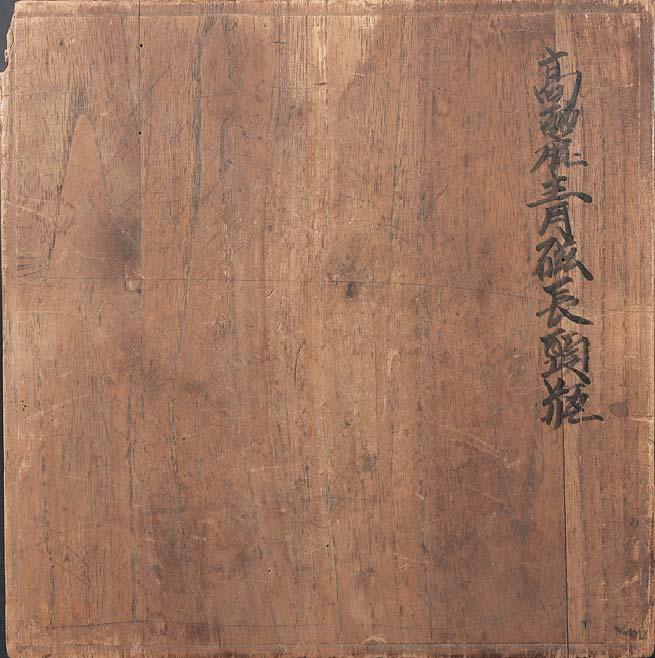 高麗産青磁長頸瓶